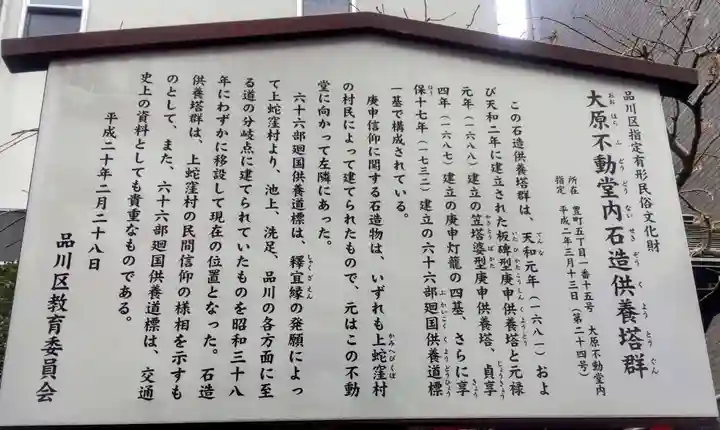 品川区指定有形民俗文化財
大原不動堂内石造供養塔群
おおはらふどうどうないせきぞうくようとうぐん
所在 豊町五丁目一番十五号 大原不動堂内
指定 平成二年三月十三日(第二十四号)
この石造供養塔群は、天和元年(一六八一)およ
び天和二年に建立された板碑型庚申供養塔と元禄
元年(一六八八)建立の笠塔婆型庚申供養塔、貞享
四年(一六八七)建立の庚申灯籠の四基、さらに享
保十七年(一七三二)建立の六十六部廻国供養道標
一基で構成されている。
庚申信仰に関する石造物は、いずれも上蛇窪村
の村民によって建てられたもので、元はこの不動
堂に向かって左隣にあった。
六十六部廻国供養道標は、釋宜縁の発願によっ
て上蛇窪村より、池上、洗足、品川の各方面に至
る道の分岐点に建てられていたものを昭和三十八
年にわずかに移設して現在の位置となった。石造
供養塔群は、上蛇窪村の民間信仰の様相を示すも
のとして、また、六十六部廻国供養道標は、交通
史上の資料としても貴重なものである。
平成二十年二月二十八日
品川区教育委員会